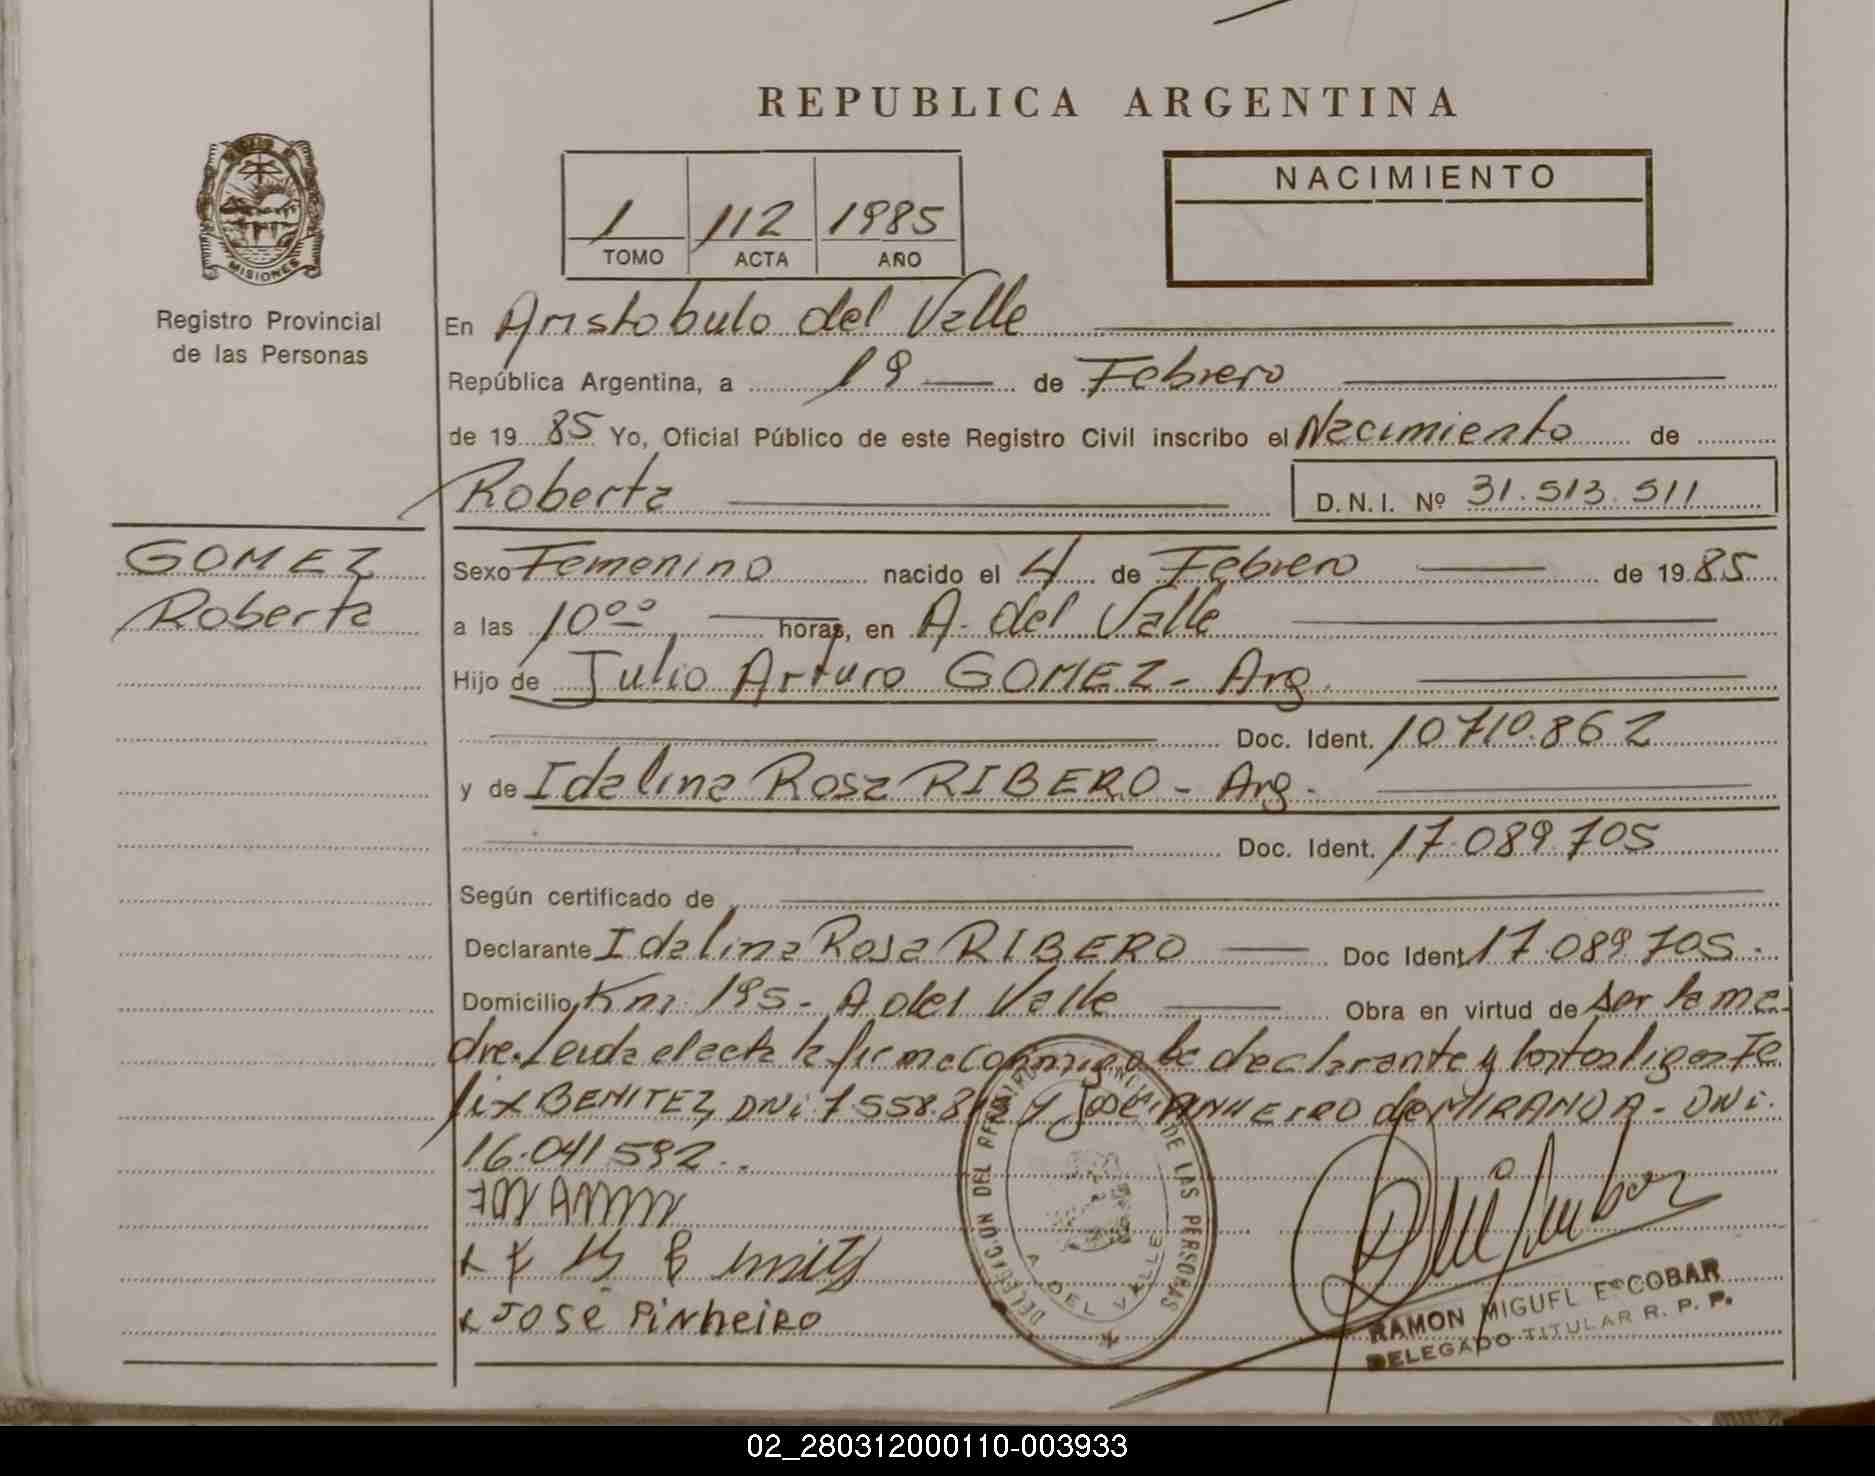 REPUBLICA ARGENTINA
MISIONES
Registro Provincial
de las Personas
1 112 1985
TOMO ACTA AÑO
NACIMIENTO
En Aristobulo del Valle
República Argentina, a 19 de Febrero
de 1985 Yo, Oficial Público de este Registro Civil inscribo el Nacimiento de
Roberta D.N.I. Nº 31.513.511
GOMEZ
Roberta
Sexo Femenino nacido el 4 de Febrero de 1985
a las 10⁰⁰ horas, en A. del Valle
Hijo de Julio Arturo GOMEZ - Arg.
Doc. Ident. 10710.862
y de Idalina Rosa RIBERO - Arg.
Doc. Ident. 17.089.705
Según certificado de
Declarante Idalina Rosa RIBERO Doc Ident. 17.089.705.
Domicilio Km 195 - A del Valle Obra en virtud de ser la ma
dre. Leida el acta la firma conmigo la declarante y los testigos Fe
lix BENITEZ, DNi 7.558.8 y José PINHEIRO de MIRANDA - DNi.
16.041.592.
x José Pinheiro
DELEGACION DEL REGISTRO PROVINCIAL DE LAS PERSONAS
A DEL VALLE
RAMON MIGUEL ESCOBAR
DELEGADO TITULAR R. P. P.
02_280312000110-003933